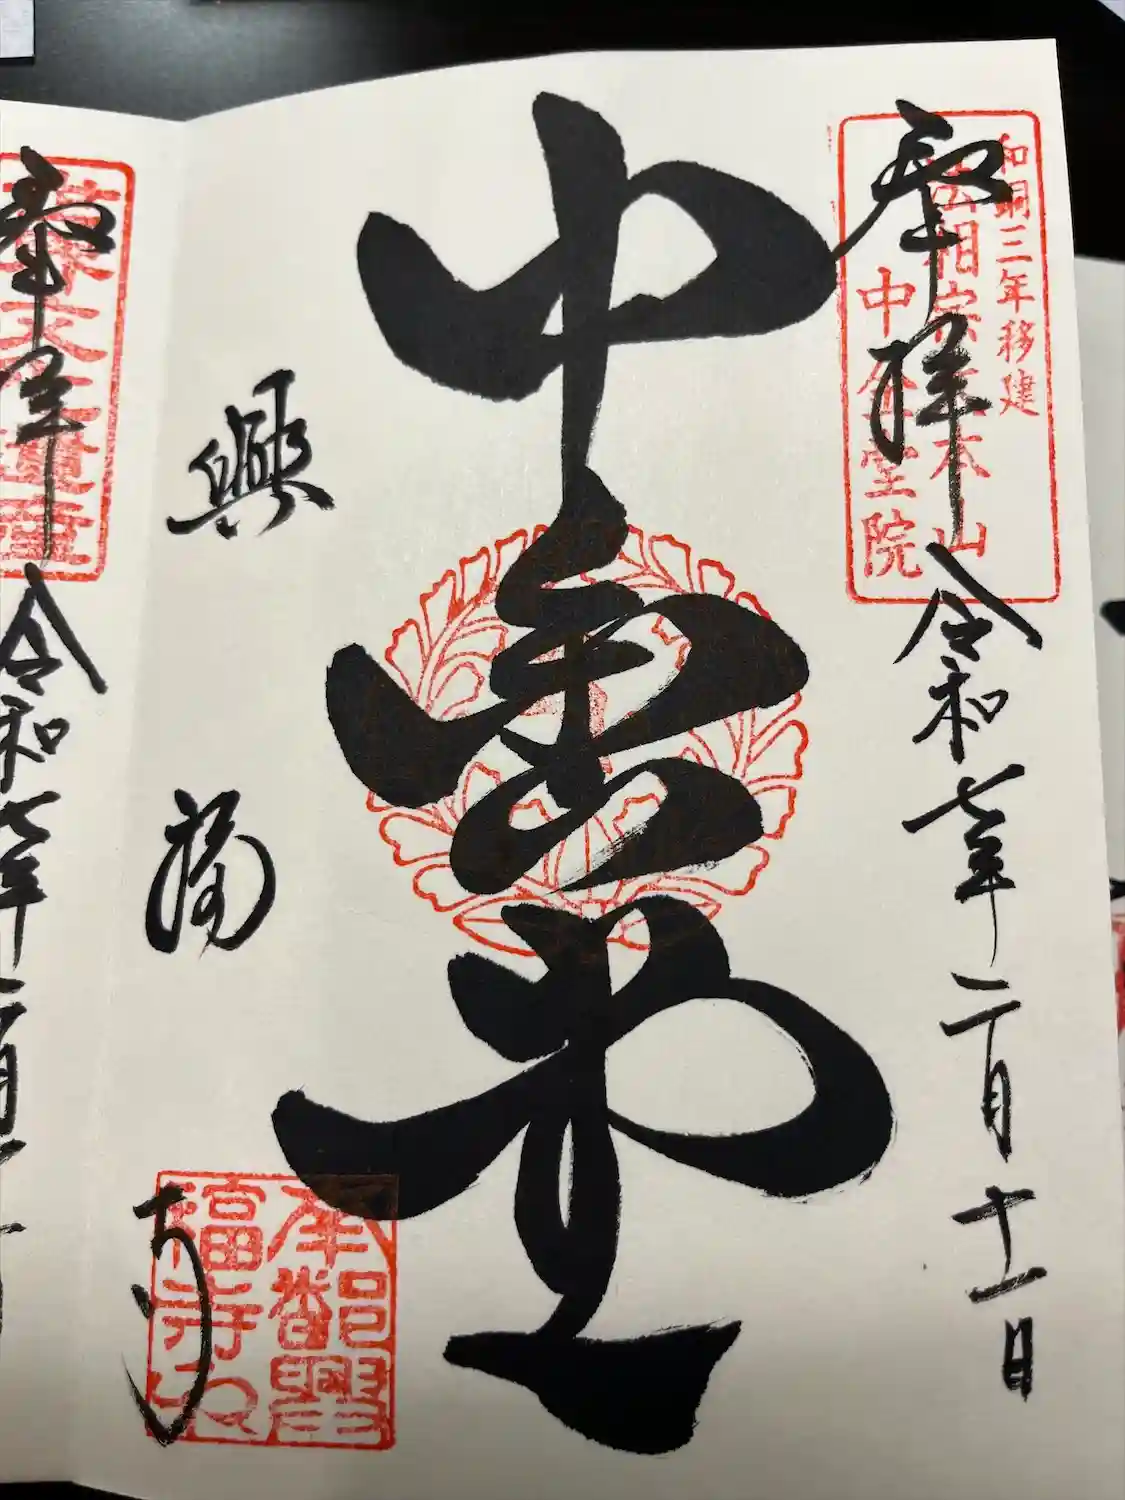 和銅三年移建
法相宗大本山
中金堂院
奉拝
令和七年二月十一日
中金堂
興福寺
南都興
福寺印
奉拝
令和七年二月十